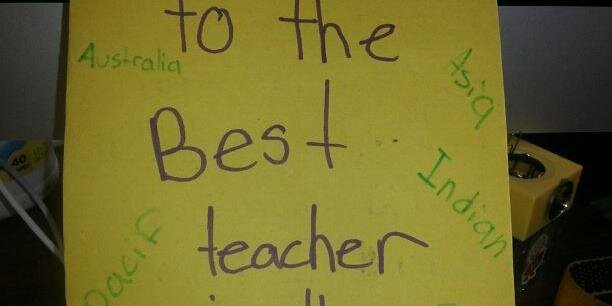 to the
Australia
Asia
Best
Indian
pacif
teacher
40